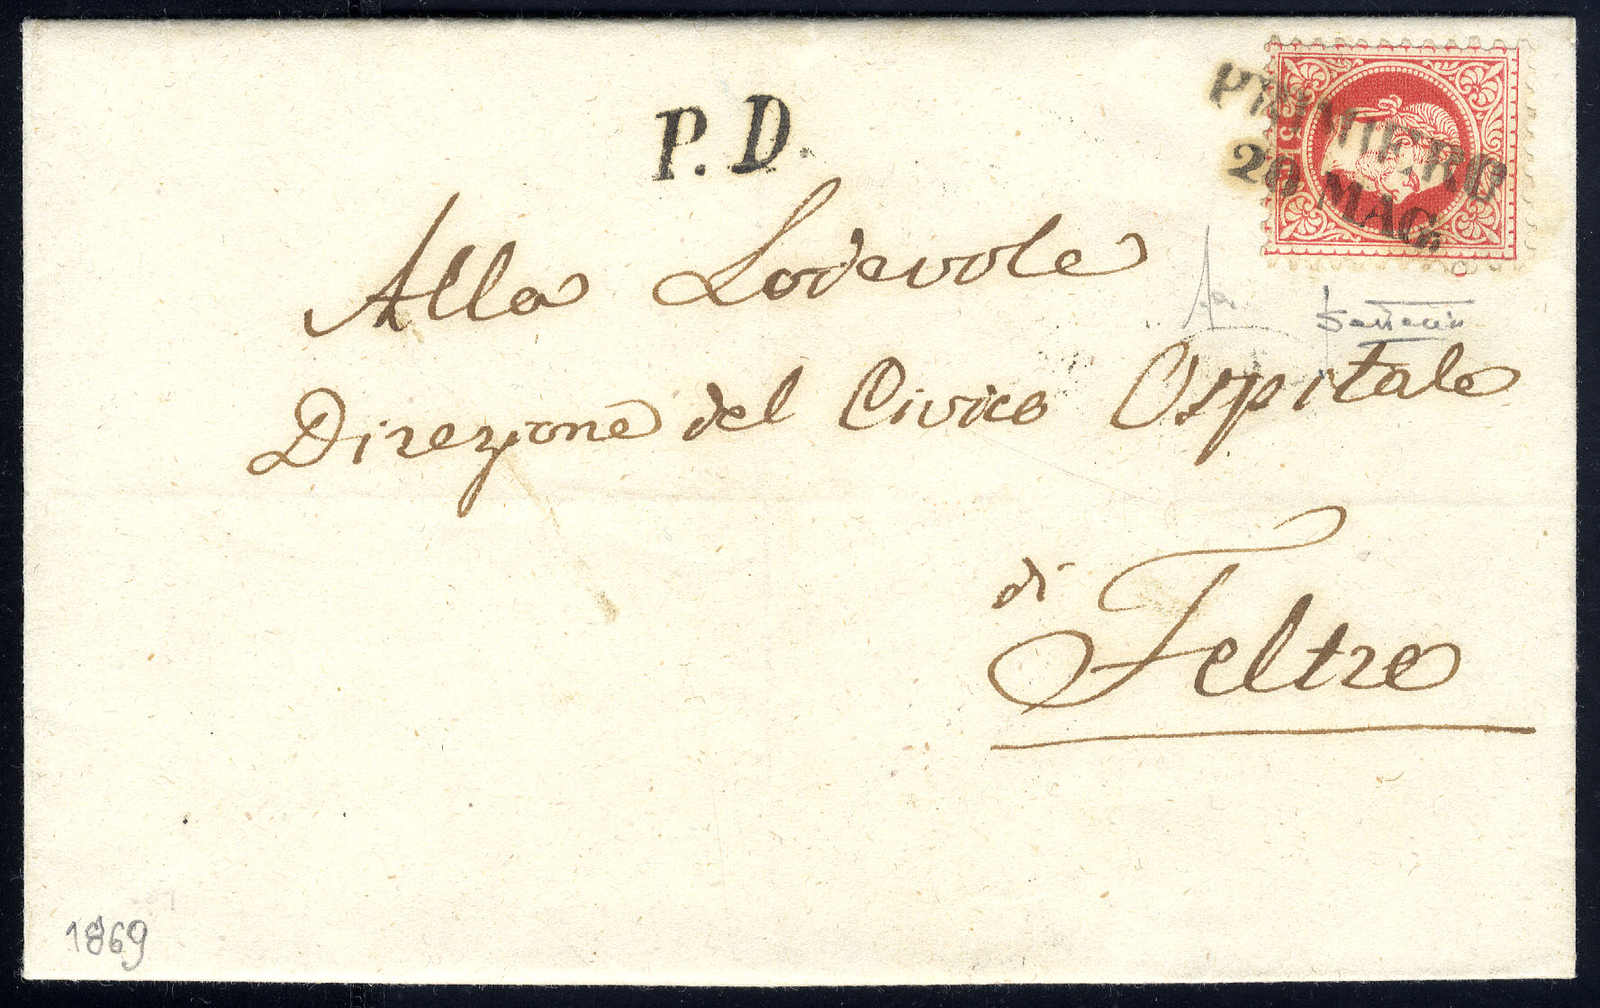 P. D.
PRIMIERO
20 MAG.
15
Alla Lodevole
Direzione del Civico Ospitale
di
Feltre
1869